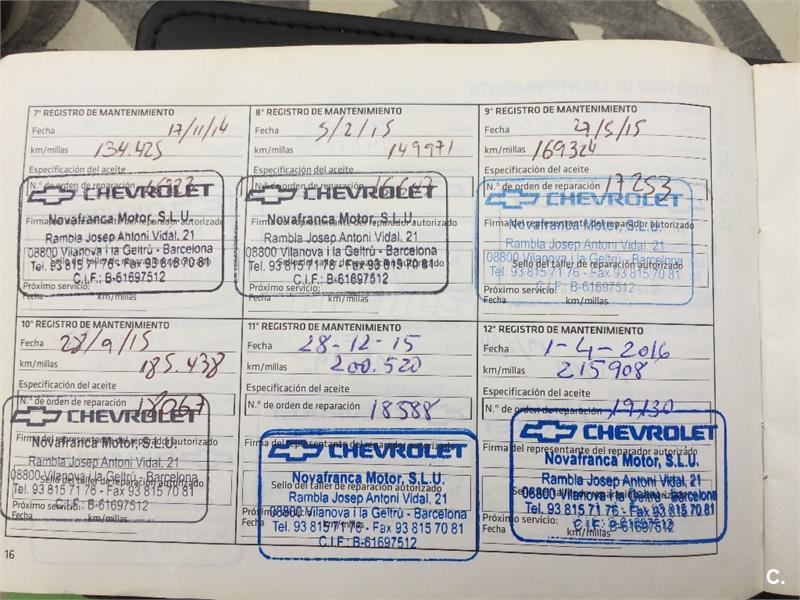 7º REGISTRO DE MANTENIMIENTO
Fecha 17/11/14
km/millas 134.425
Especificación del aceite
N.º de orden de reparación
CHEVROLET
Novafranca Motor, S.L.U.
Firma del representante del reparador autorizado
Rambla Josep Antoni Vidal, 21
08800 Vilanova i la Geltrú - Barcelona
Sello del taller de reparación autorizado
Tel. 93 815 71 76 - Fax 93 815 70 81
C.I.F.: B-61697512
Próximo servicio:
Fecha km/millas
8º REGISTRO DE MANTENIMIENTO
Fecha 5/2/15
km/millas 149971
Especificación del aceite
N.º de orden de reparación
CHEVROLET
Novafranca Motor, S.L.U.
Firma del representante del reparador autorizado
Rambla Josep Antoni Vidal, 21
08800 Vilanova i la Geltrú - Barcelona
Sello del taller de reparación autorizado
Tel. 93 815 71 76 - Fax 93 815 70 81
C.I.F.: B-61697512
Próximo servicio:
Fecha km/millas
9º REGISTRO DE MANTENIMIENTO
Fecha 27/5/15
km/millas 169324
Especificación del aceite
N.º de orden de reparación 17253
CHEVROLET
Firma del representante del reparador autorizado
Novafranca Motor, S.L.U.
Rambla Josep Antoni Vidal, 21
08800 Vilanova i la Geltrú - Barcelona
Sello del taller de reparación autorizado
Tel. 93 815 71 76 - Fax 93 815 70 81
C.I.F.: B-61697512
Próximo servicio:
Fecha km/millas
10º REGISTRO DE MANTENIMIENTO
Fecha 28/9/15
km/millas 185.438
Especificación del aceite
N.º de orden de reparación 18067
CHEVROLET
Novafranca Motor, S.L.U.
Firma del representante del reparador autorizado
Rambla Josep Antoni Vidal, 21
08800 Vilanova i la Geltrú - Barcelona
Sello del taller de reparación autorizado
Tel. 93 815 71 76 - Fax 93 815 70 81
C.I.F.: B-61697512
Próximo servicio:
Fecha km/millas
11º REGISTRO DE MANTENIMIENTO
Fecha 28-12-15
km/millas 200.520
Especificación del aceite
N.º de orden de reparación 18588
CHEVROLET
Firma del representante del reparador autorizado
Novafranca Motor, S.L.U.
Sello del taller de reparación autorizado
Rambla Josep Antoni Vidal, 21
08800 Vilanova i la Geltrú - Barcelona
Próximo servicio:
Tel. 93 815 71 76 - Fax 93 815 70 81
Fecha km/millas
C.I.F.: B-61697512
12º REGISTRO DE MANTENIMIENTO
Fecha 1-4-2016
km/millas 215908
Especificación del aceite
N.º de orden de reparación 19130
CHEVROLET
Firma del representante del reparador autorizado
Novafranca Motor, S.L.U.
Rambla Josep Antoni Vidal, 21
Sello del taller de reparación autorizado
08800 Vilanova i la Geltrú - Barcelona
Tel. 93 815 71 76 - Fax 93 815 70 81
Próximo servicio:
Fecha km/millas
C.I.F.: B-61697512
16
C.